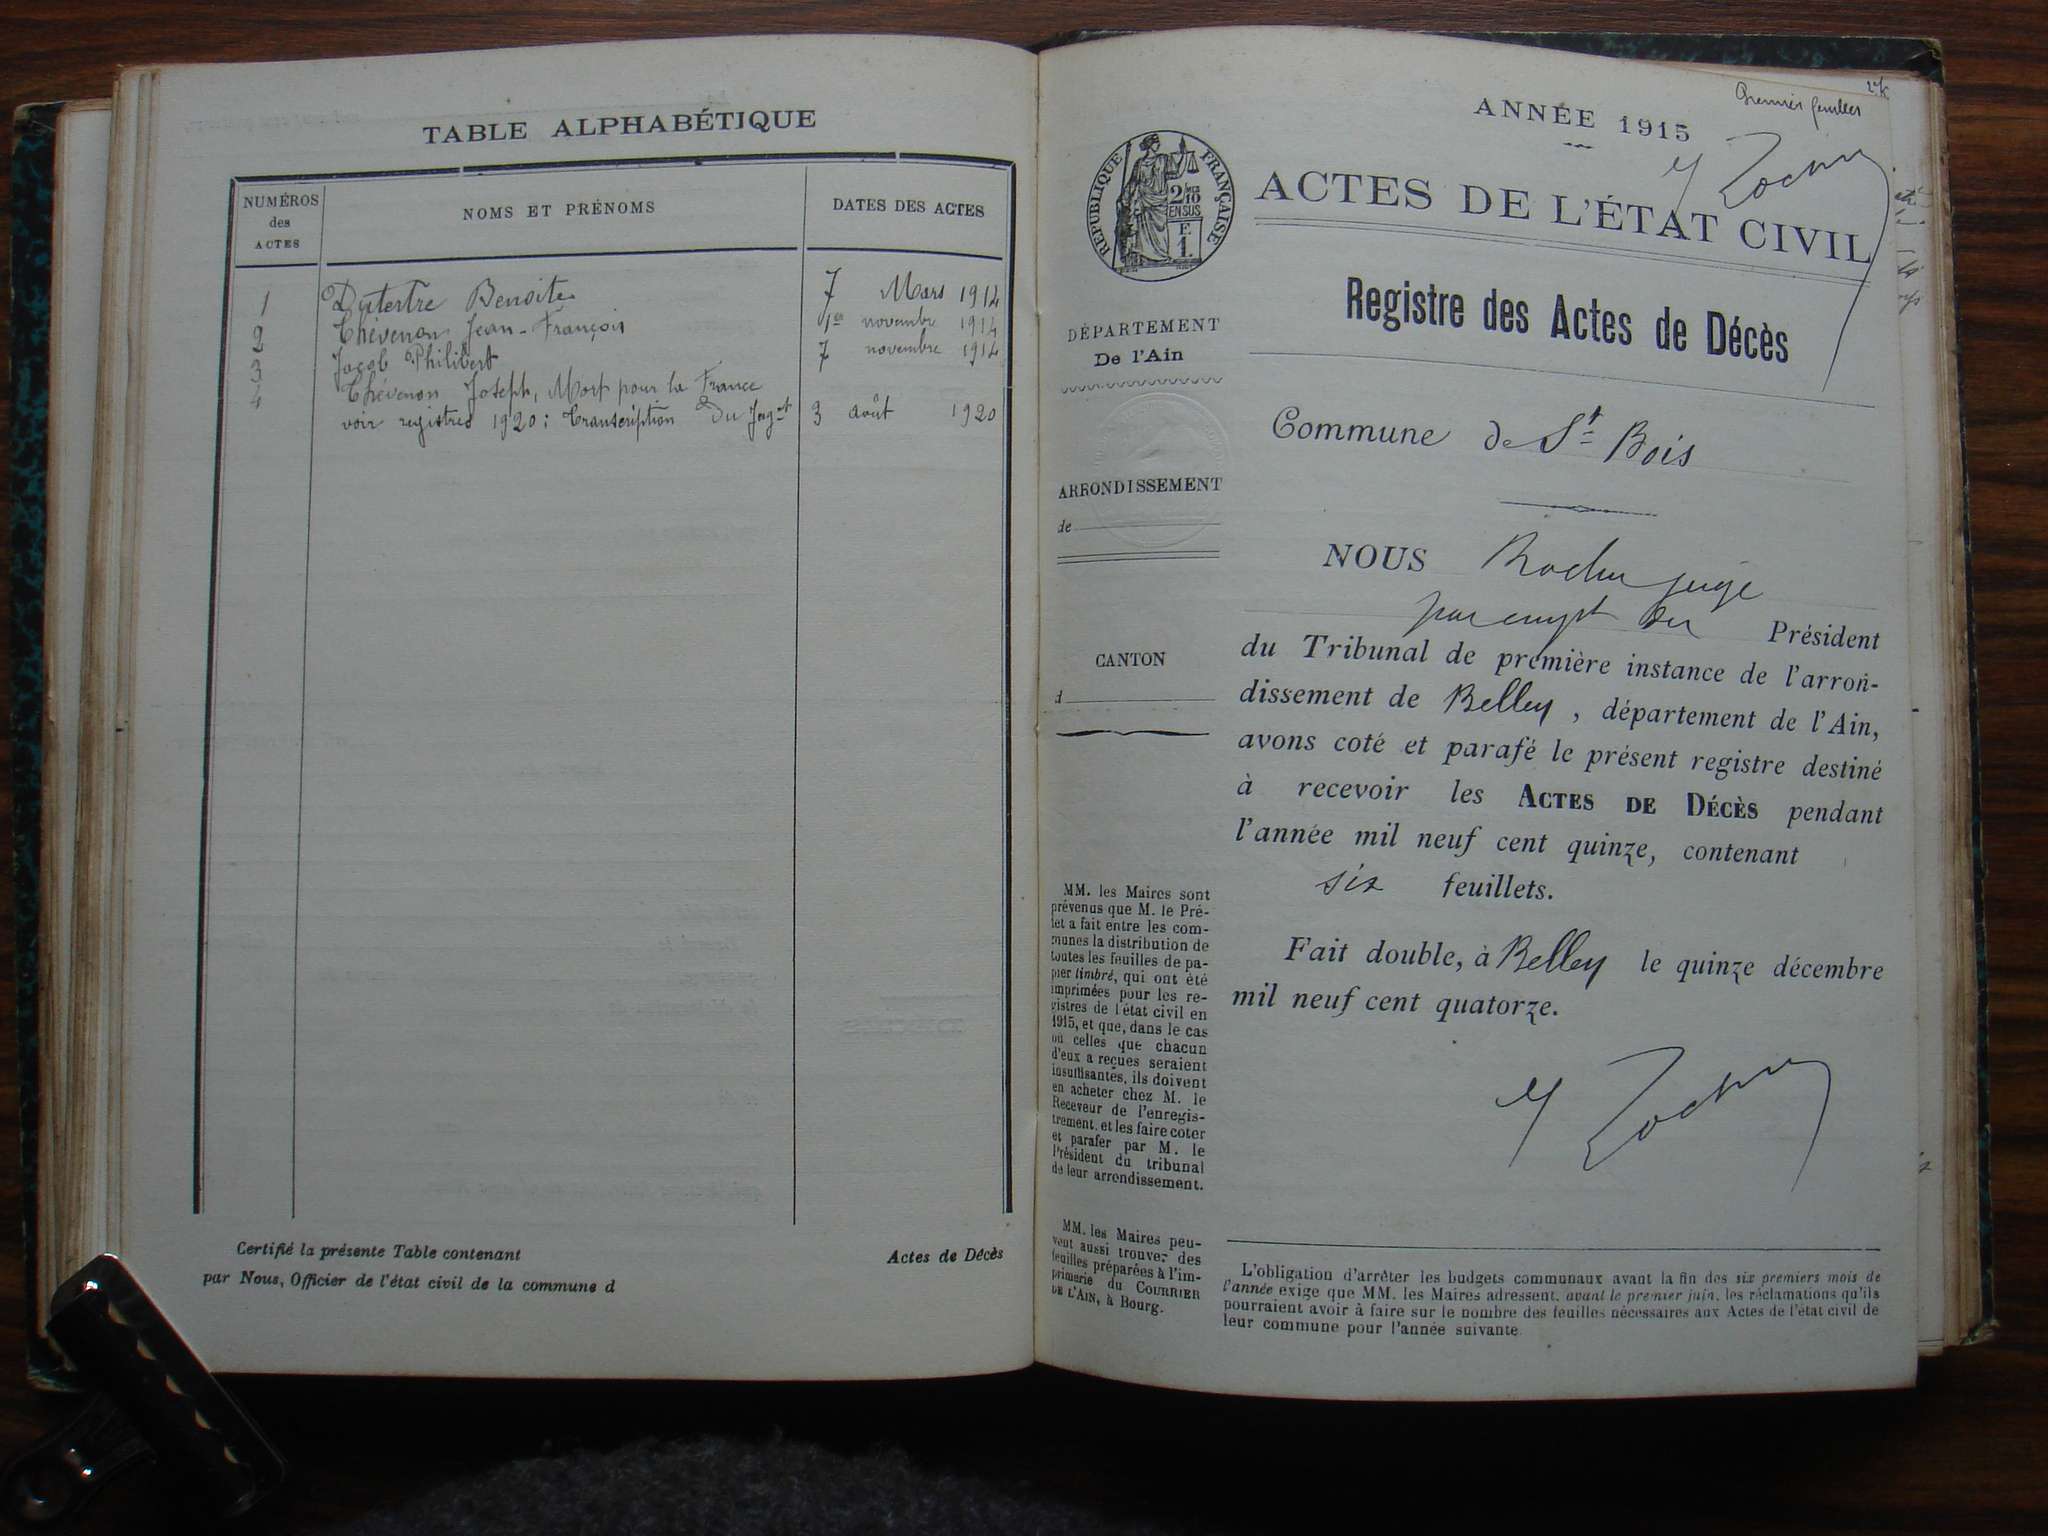 TABLE ALPHABÉTIQUE
NUMÉROS des ACTES
NOMS ET PRÉNOMS
DATES DES ACTES
1 Dutertre Benoite 7 Mars 1914
2 Thévenon Jean-François 1er novembre 1914
3 Jacob Philibert 7 novembre 1914
4 Thévenon Joseph, Mort pour la France
voir registres 1920: Transcription du Jugt 3 août 1920
Certifié la présente Table contenant Actes de Décès
par Nous, Officier de l'état civil de la commune d
Premier feuillet
ANNÉE 1915
ACTES DE L'ÉTAT CIVIL
RÉPUBLIQUE FRANÇAISE
2/10
EN SUS
F
1.
Registre des Actes de Décès
DÉPARTEMENT
De l'Ain
Commune de St Bois
ARRONDISSEMENT
de
CANTON
d
NOUS Rocher juge
par empt du Président
du Tribunal de première instance de l'arron-
dissement de Belley, département de l'Ain,
avons coté et parafé le présent registre destiné
à recevoir les ACTES DE DÉCÈS pendant
l'année mil neuf cent quinze, contenant
six feuillets.
Fait double, à Belley le quinze décembre
mil neuf cent quatorze.
MM. les Maires sont
prévenus que M. le Pré-
fet a fait entre les com-
munes la distribution de
toutes les feuilles de pa-
pier timbré, qui ont été
imprimées pour les re-
gistres de l'état civil en
1915, et que, dans le cas
où celles que chacun
d'eux a reçues seraient
insuffisantes, ils doivent
en acheter chez M. le
Receveur de l'enregis-
trement, et les faire coter
et parafer par M. le
Président du tribunal
de leur arrondissement.
MM. les Maires peu-
vent aussi trouver des
feuilles préparées à l'im-
primerie du COURRIER
DE L'AIN, à Bourg.
L'obligation d'arrêter les budgets communaux avant la fin des six premiers mois de
l'année exige que MM. les Maires adressent, avant le premier juin, les réclamations qu'ils
pourraient avoir à faire sur le nombre des feuilles nécessaires aux Actes de l'état civil de
leur commune pour l'année suivante.